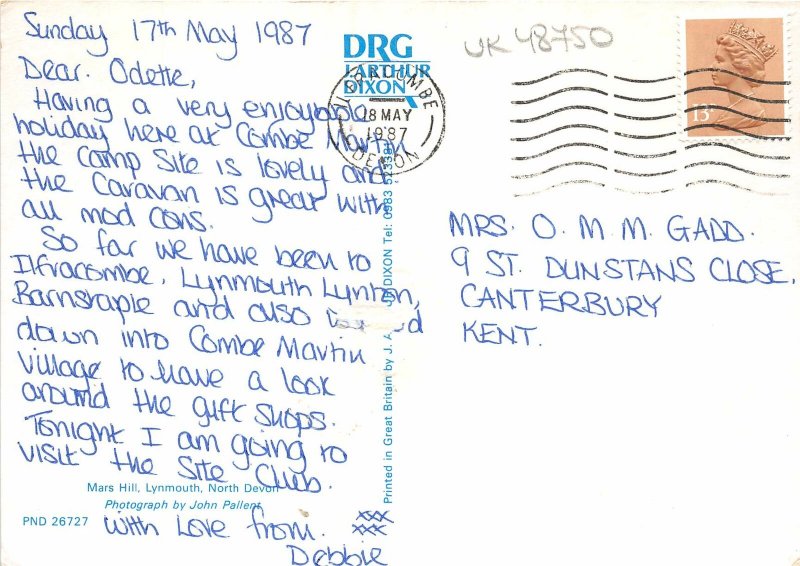 Sunday 17th May 1987
Dear. Odette,
Having a very enjoyable
holiday here at Combe Martin
the Camp Site is lovely and
the Caravan is great with
all mod cons.
So far we have been to
Ilfracombe, Lynmouth Lynton,
Barnstaple and also
down into Combe Martin
Village to have a look
around the gift shops.
Tonight I am going to
visit the Site Club.
Mars Hill, Lynmouth, North Devon
Photograph by John Pallent
PND 26727
with Love from.
xxx
xxx
Debbie
DRG
J. ARTHUR
DIXON
Printed in Great Britain by J. A DIXON Tel: 0983 523381
ILFRACOMBE
18 MAY
1987
DEVON
UK 48750
13
MRS. O. M. M. GADD.
9 ST. DUNSTANS CLOSE.
CANTERBURY
KENT.